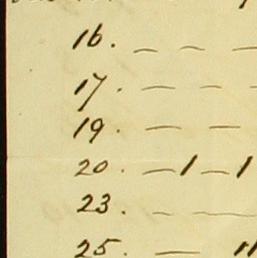 16. — — —
17. — — —
19. — — 
20. — 1 — 1
23. — —
25. — 11